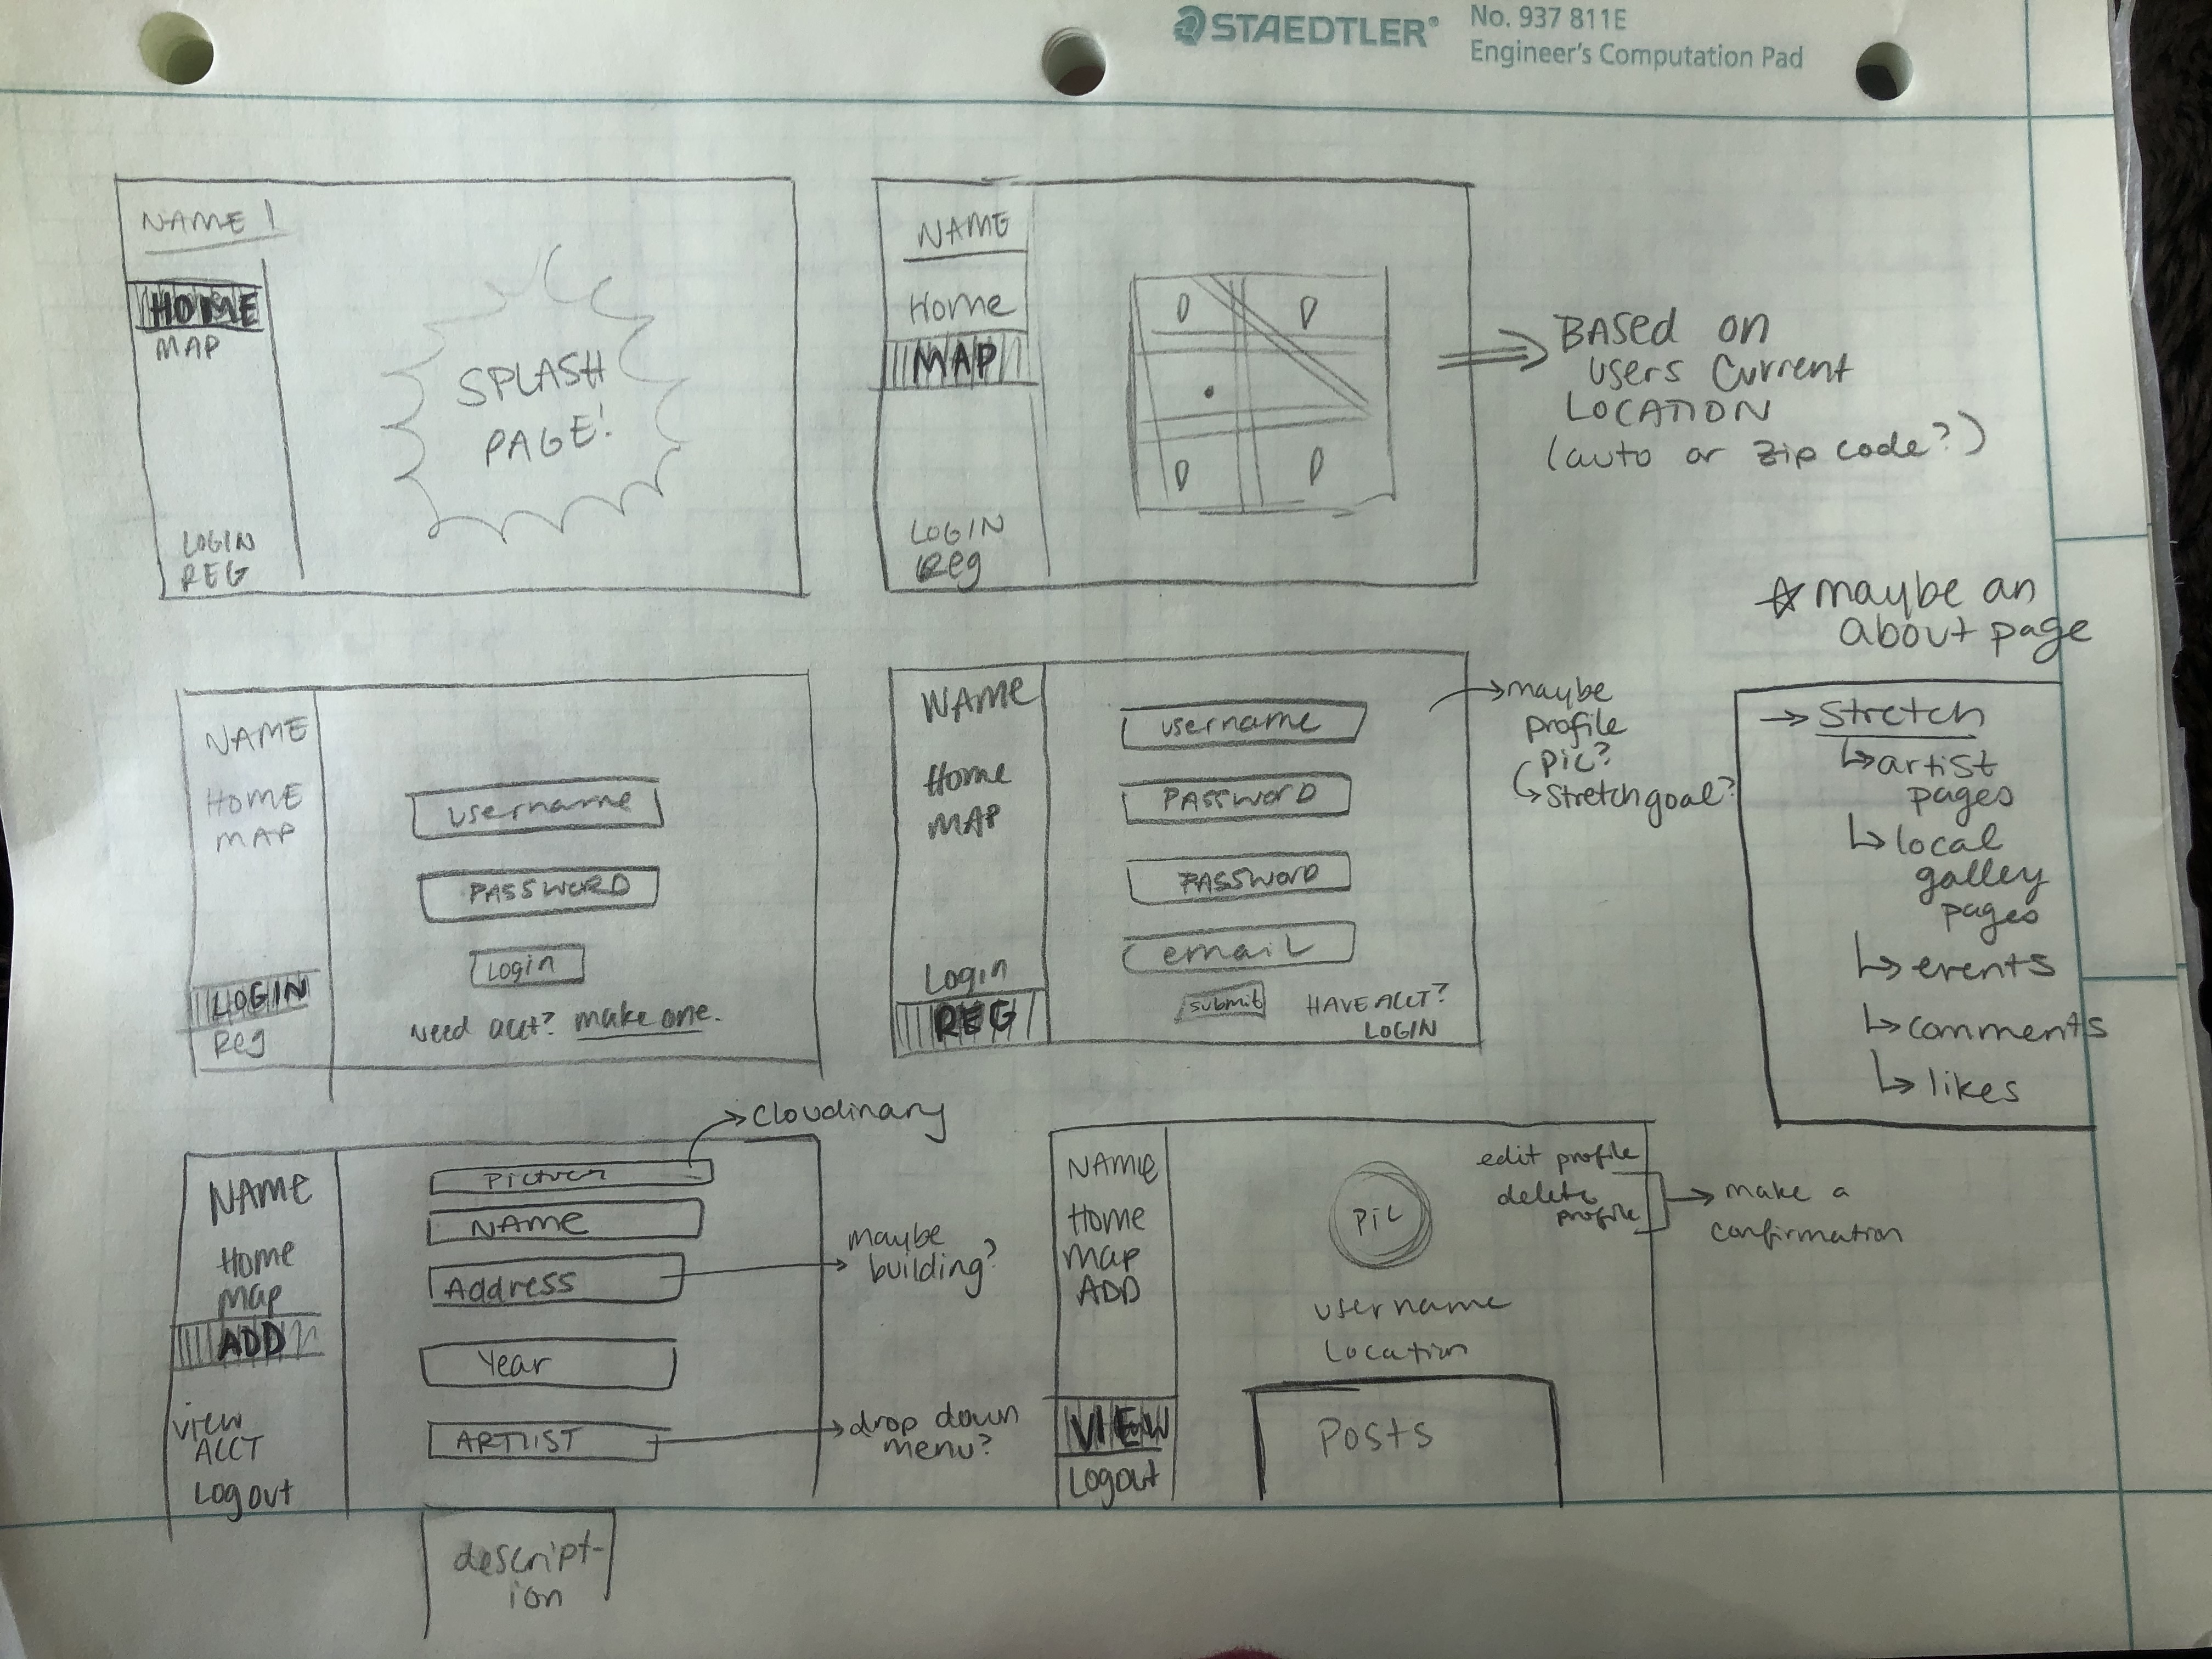 STAEDTLER®
No. 937 811E
Engineer's Computation Pad
NAME!
HOME
MAP
LOGIN
REG
SPLASH
PAGE!
NAME
Home
MAP
LOGIN
Reg
BASED on
users current
LOCATION
(auto or zip code?)
☆ maybe an
about page
NAME
HOME
MAP
LOGIN
Reg
username
PASSWORD
Login
Need acct? make one.
NAME
Home
MAP
Login
REG
username
PASSWORD
PASSWORD
email
submit
HAVE ACCT?
LOGIN
maybe
profile
pic?
Stretch goal?
→ Stretch
↳ artist
pages
↳ local
galley
pages
↳ events
↳ comments
↳ likes
NAME
Home
Map
ADD
view
ACCT
Logout
Picture
→ Cloudinary
NAME
Address
maybe
building?
Year
ARTIIST
drop down
menu?
descript-
ion
NAME
Home
Map
ADD
VIEW
Logout
Pic
edit profile
delete
profile
make a
confirmation
username
Location
Posts